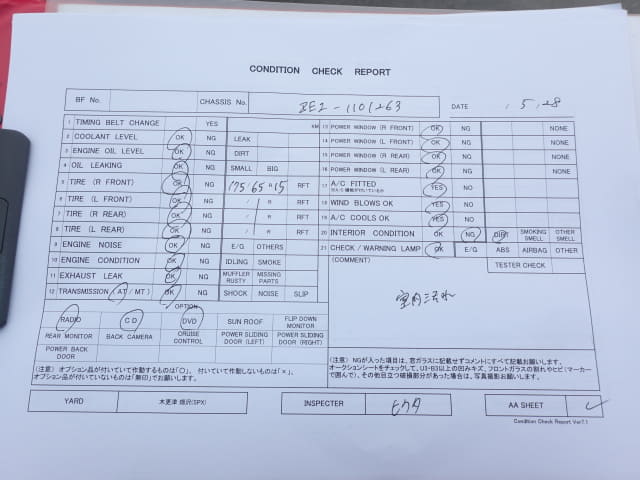 CONDITION CHECK REPORT
BF No. CHASSIS No. DATE , 5, -28
1 TIMING BELT CHANGE YES KM
2 COOLANT LEVEL OK NG LEAK
3 ENGINE OIL LEVEL OK NG DIRT
4 OIL LEAKING OK NG SMALL BIG
5 TIRE (R FRONT) OK NG 175/65R15 RFT
6 TIRE (L FRONT) OK NG / R RFT
7 TIRE (R REAR) OK NG / R RFT
8 TIRE (L REAR) OK NG / R RFT
9 ENGINE NOISE OK NG E/G OTHERS
10 ENGINE CONDITION OK NG IDLING SMOKE
11 EXHAUST LEAK OK NG MUFFLER RUSTY MISSING PARTS
12 TRANSMISSION (AT/MT) OK NG SHOCK NOISE SLIP
OPTION
RADIO CD DVD SUN ROOF FLIP DOWN MONITOR
REAR MONITOR BACK CAMERA CRUISE CONTROL POWER SLIDING DOOR (LEFT) POWER SLIDING DOOR (RIGHT)
POWER BACK DOOR
(注意) オプション品が付いていて作動するものは「〇」、 付いていて作動しないものは「×」、
オプション品が付いていないものは「無印」でお願いします。
13 POWER WINDOW (R FRONT) OK NG NONE
14 POWER WINDOW (L FRONT) OK NG NONE
15 POWER WINDOW (R REAR) OK NG NONE
16 POWER WINDOW (L REAR) OK NG NONE
17 A/C FITTED YES NO
18 WIND BLOWS OK YES NO
19 A/C COOLS OK YES NO
20 INTERIOR CONDITION OK NG DIRT SMOKING SMELL OTHER SMELL
21 CHECK/WARNING LAMP OK E/G ABS AIRBAG OTHER
(COMMENT) TESTER CHECK
室内汚れ
(注意) NGが入った項目は、窓ガラスに記載せずコメントにすべて記載お願いします。
オークションシートをチェックして、U3・B3以上の凹みキズ、フロントガラスの割れやヒビ(マーカー
で囲んで)、その他目立つ破損部分があった場合は、写真撮影お願いします。
YARD 木更津 畑沢(SPX) INSPECTER AA SHEET
Condition Check Report Ver7.1